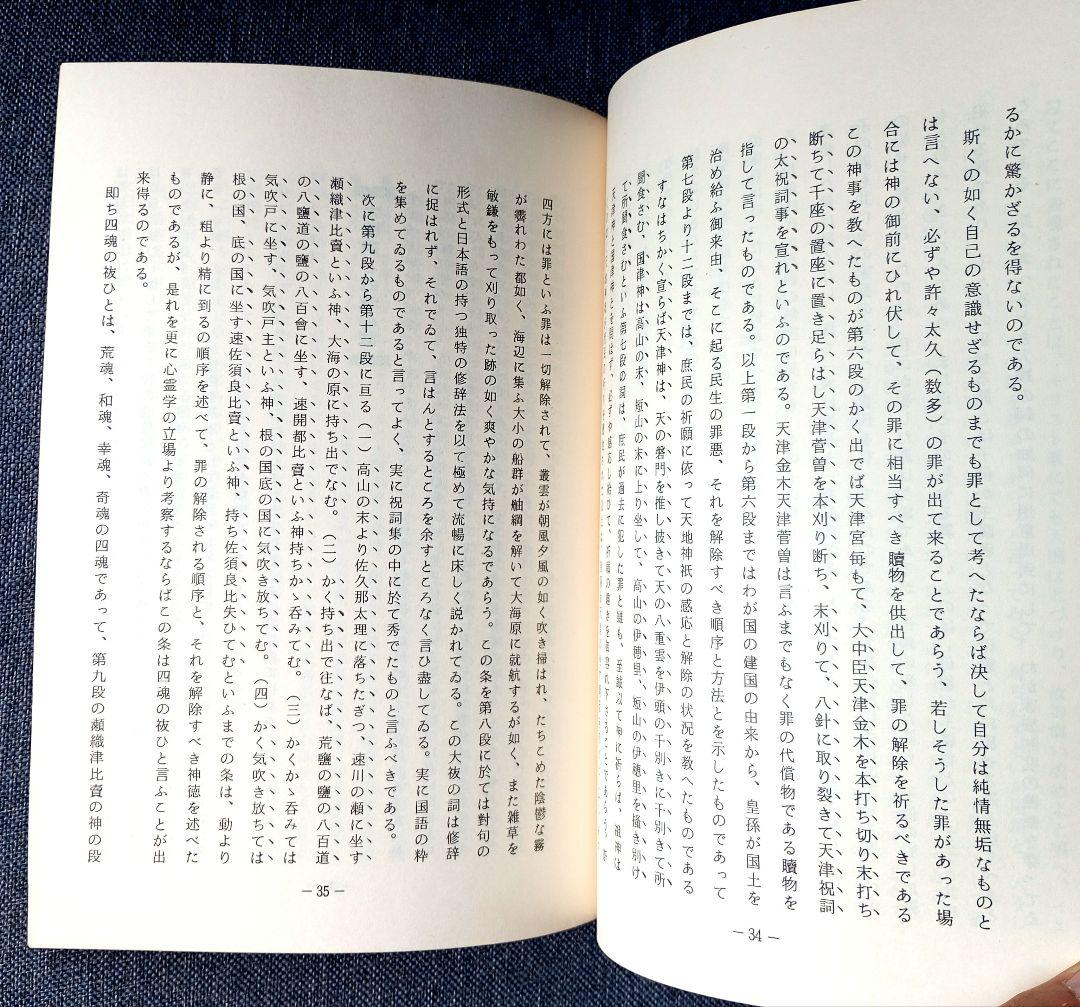 るかに驚かざるを得ないのである。
斯くの如く自己の意識せざるものまでも罪として考へたならば決して自分は純情無垢なものと
は言へない、必ずや許々太久（数多）の罪が出て来ることであらう、若しそうした罪があった場
合には神の御前にひれ伏して、その罪に相当すべき贖物を供出して、罪の解除を祈るべきである
この神事を教へたものが第六段のかく出でば天津宮毎もて、大中臣天津金木を本打ち切り末打ち
断ちて千座の置座に置き足らはし天津菅曽を本刈り断ち、末刈りて、八針に取り裂きて天津祝詞
の太祝詞事を宣れといふのである。天津金木天津菅曽は言ふまでもなく罪の代償物である贖物を
指して言ったものである。以上第一段から第六段まではわが国の建国の由来から、皇孫が国土を
治め給ふ御来由、そこに起る民生の罪悪、それを解除すべき順序と方法とを示したものであって
第七段より十二段までは、庶民の祈願に依って天地神祇の感応と解除の状況を教へたものである
すなはちかく宣らば天津神は、天の磐門を推し披きて天の八重雲を伊頭の千別きに千別きて所
聞食さむ、国津神は高山の末、短山の末に上り坐して、高山の伊穂里、短山の伊穂里を掻き別け
て所聞食さむといふ第七段の詞は、庶民が過去に犯した罪と雖も、至誠以て神に祈らば、
天津神と国津神とを問はず、必ずや感応し給ひて、
― 34 ―
四方には罪といふ罪は一切解除されて、叢雲が朝風夕風の如く吹き掃はれ、たちこめた陰鬱な霧
が霽れわた都如く、海辺に集ふ大小の船群が舳綱を解いて大海原に就航するが如く、また雑草を
敏鎌をもって刈り取った跡の如く爽やかな気持になるであらう。この条を第八段に於ては對句の
形式と日本語の持つ独特の修辞法を以て極めて流暢に床しく説かれてゐる。この大祓の詞は修辞
に捉はれず、それでゐて、言はんとするところを余すところなく言ひ盡してゐる。実に国語の粋
を集めてゐるものであると言ってよく、実に祝詞集の中に於て秀でたものと言ふべきである。
次に第九段から第十二段に亘る（一）高山の末より佐久那太理に落ちたぎつ、速川の瀬に坐す
瀬織津比賣といふ神、大海の原に持ち出でなむ。（二）かく持ち出で往なば、荒鹽の鹽の八百道
の八鹽道の鹽の八百會に坐す、速開都比賣といふ神持ちかゝ呑みてむ。（三）かくかゝ呑みては
気吹戸に坐す、気吹戸主といふ神、根の国底の国に気吹き放ちてむ。（四）かく気吹き放ちては
根の国、底の国に坐す速佐須良比賣といふ神、持ち佐須良比失ひてむといふまでの条は、動より
静に、粗より精に到るの順序を述べて、罪の解除される順序と、それを解除すべき神徳を述べた
ものであるが、是れを更に心霊学の立場より考察するならばこの条は四魂の祓ひと言ふことが出
来得るのである。
即ち四魂の祓ひとは、荒魂、和魂、幸魂、奇魂の四魂であって、第九段の瀬織津比賣の神の段
― 35 ―